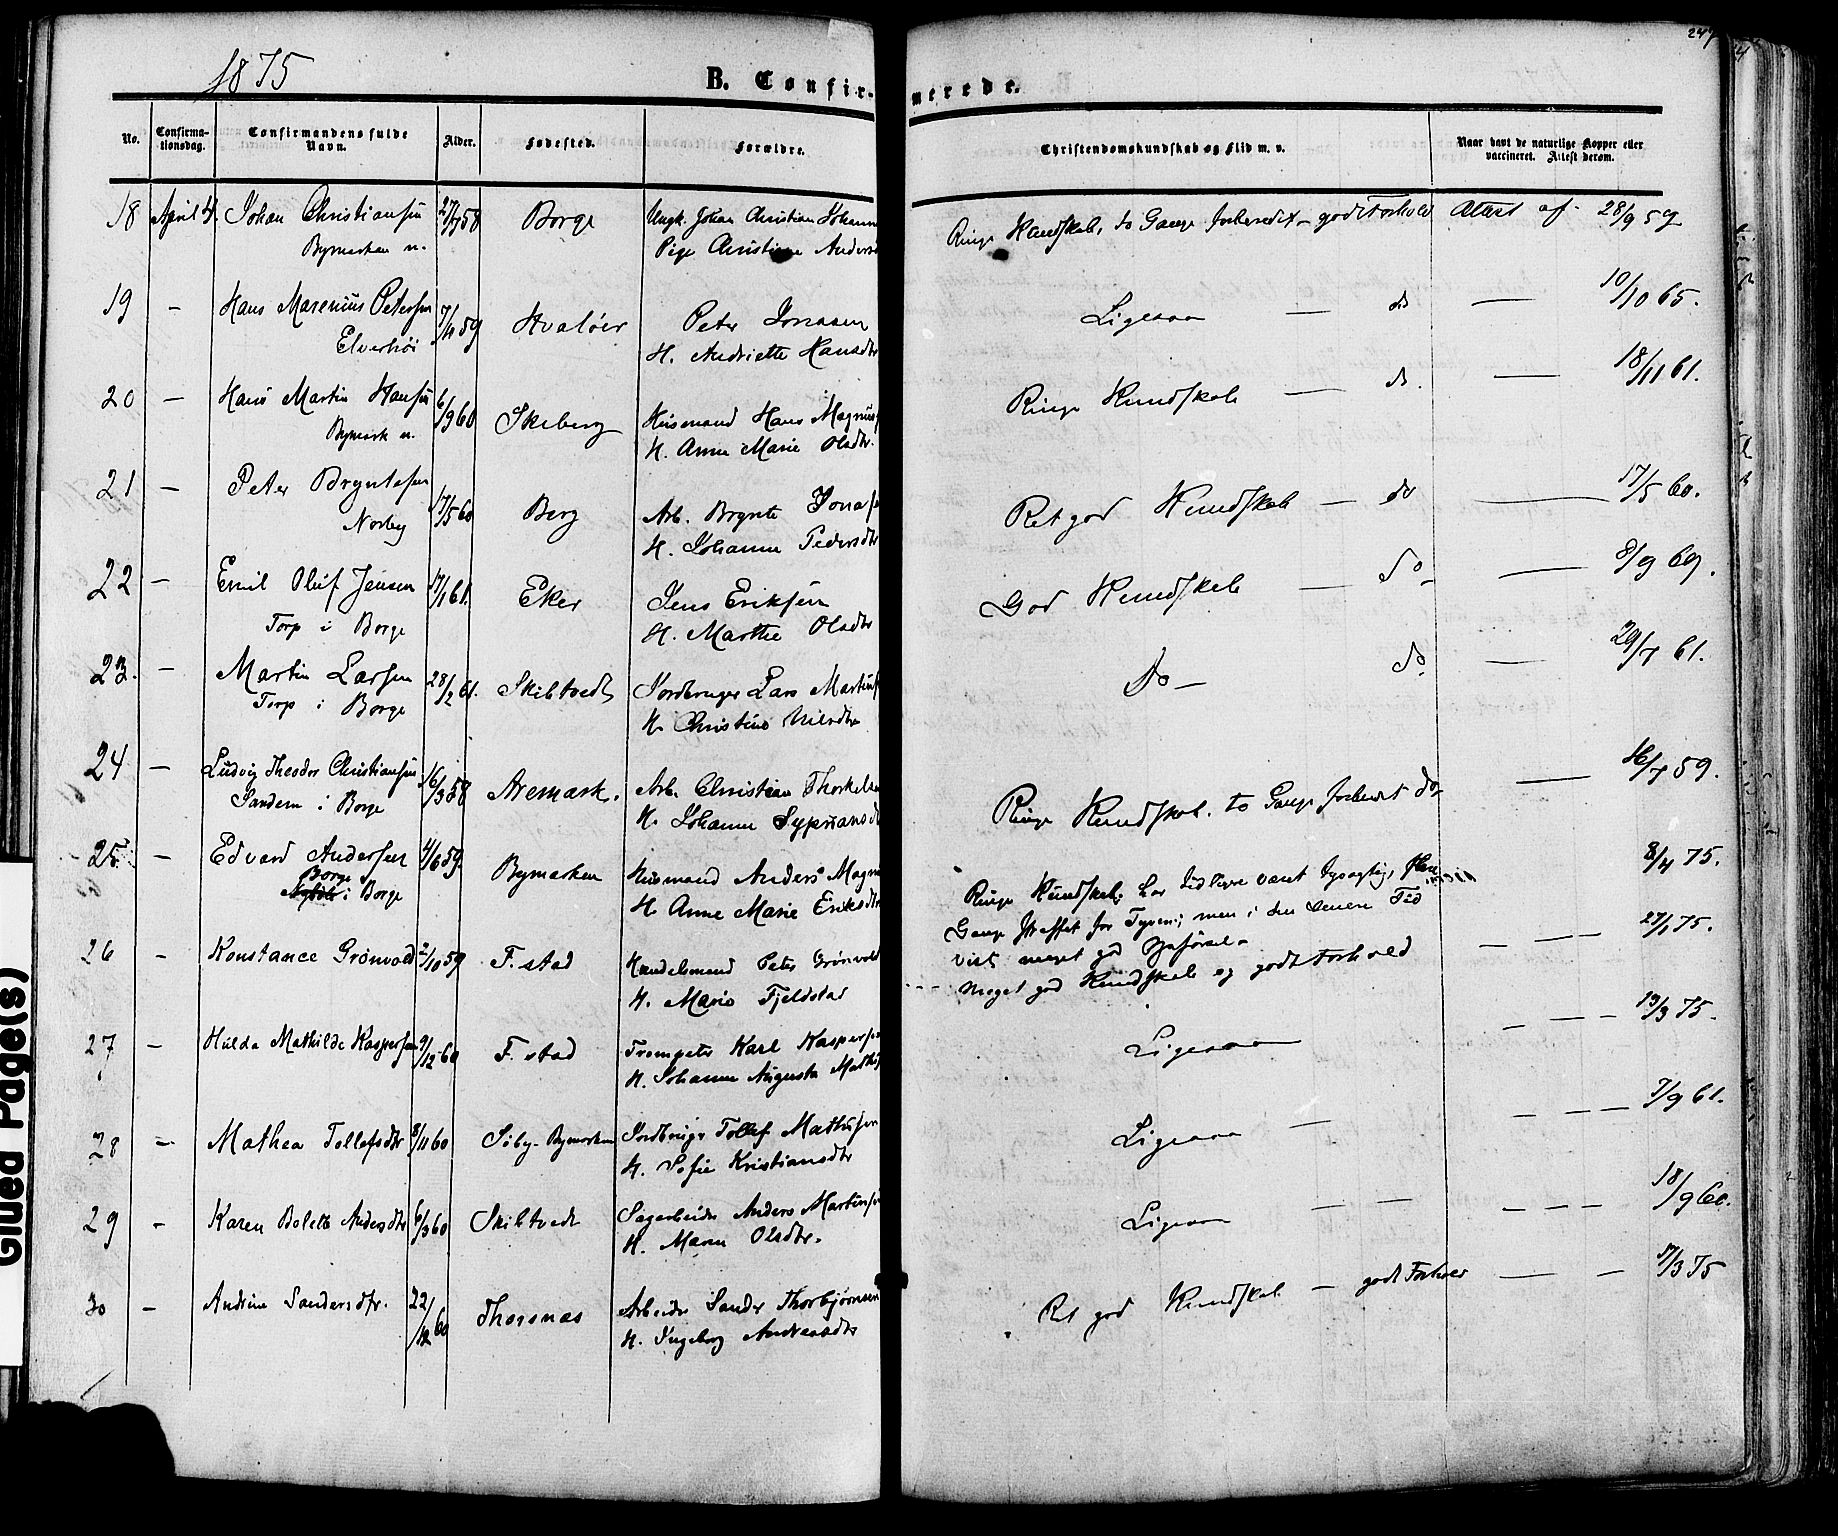 1875
B. Confir-
merede.
No.
Confirma-
tionsdag.
Confirmandens fulde
Navn.
Alder.
Fødested.
Forældre.
Christendomskundskab og Flid m. v.
Naar havt de naturlige Kopper eller
vaccineret. Attest derom.
18 April 4. Johan Christiansen 58 Borge Ungk. Johan Christian Johann
Bymarken n. Pige Christiane Anders
Ringe Kundskab, to Gange forberedt – godt Forhold Attest af 28/9 59
19 – Hans Marenius Petersen 59 Hvaløer Peter Jonasen
Elverhøi H. Andriette Hansdtr
Ligesaa — do — 10/10 65.
20 – Hans Martin Hansen 6/9 60 Skeberg Husmand Hans Magnus
Bymark n. H. Anne Marie Olsdtr.
Ringe Kundskab — do. — 18/11 61.
21 – Peter Bryntesen 17/5 60 Berg Arb. Brynte Jonas
Norby H. Johanne Pedersdtr
Ret god Kundskab — do — 17/5 60.
22 – Emil Oluf Jensen 17/1 61. Eker Jens Eriksen
Torp i Borge H. Marthe Olsdtr
God Kundskab — do — 8/9 69.
23. – Martin Larsen 28/2 61. Skibtvedt Jordbruger Lars Martins
Torp i Borge H. Christine Nilsdtr
Do — do — 29/7 61.
24 – Ludvig Theodor Christiansen 16/3 58 Aremark. Arb. Christian Thorkels
Sandem i Borge H. Johanne
Ringe Kundskab. to Gange forberedt do — 16/7 59.
25. – Edvard Andersen 4/6 59. Bymarken Husmand Anders Magn
Borge
i Borge H. Anne Marie Eriksdtr
Ringe Kundskab; har tidligere været
Gange straffet for Tyveri; men i den senere Tid
vist meget god Opførsel – 8/4 75.
26 – Konstance Grönvold 2/10 59 F. stad Handelsmand Peter Grönvold
H. Marie Fjeldstad
Meget god Kundskab og godt Forhold — 27/1 75.
27 – Hulda Mathilde Kaspersen 9/12 60 F. stad Trompeter Karl Kaspersen
H. Johanne Augusta
Ligesaa — 13/3 75.
28 – Mathea Tollefsdtr 8/11 60 Bymarken Jordbruger Tollef Mathisen
H. Sofie Kristiansdtr
Ligesaa — 7/9 61.
29 – Karen Bolette Andersdtr 6/3 60 Skibtvedt Sagarbeider Anders Martinsen
H. Maren Olsdtr.
Ligesaa — 18/9 60.
30 – Andrine Sandersdtr. 22/12 60 Thorsnæs Arbeider Sander Thorbjørnsen
H. Ingeborg Andreasdtr
Ret god Kundskab — godt Forhold — 17/3 75
Glued Page(s)